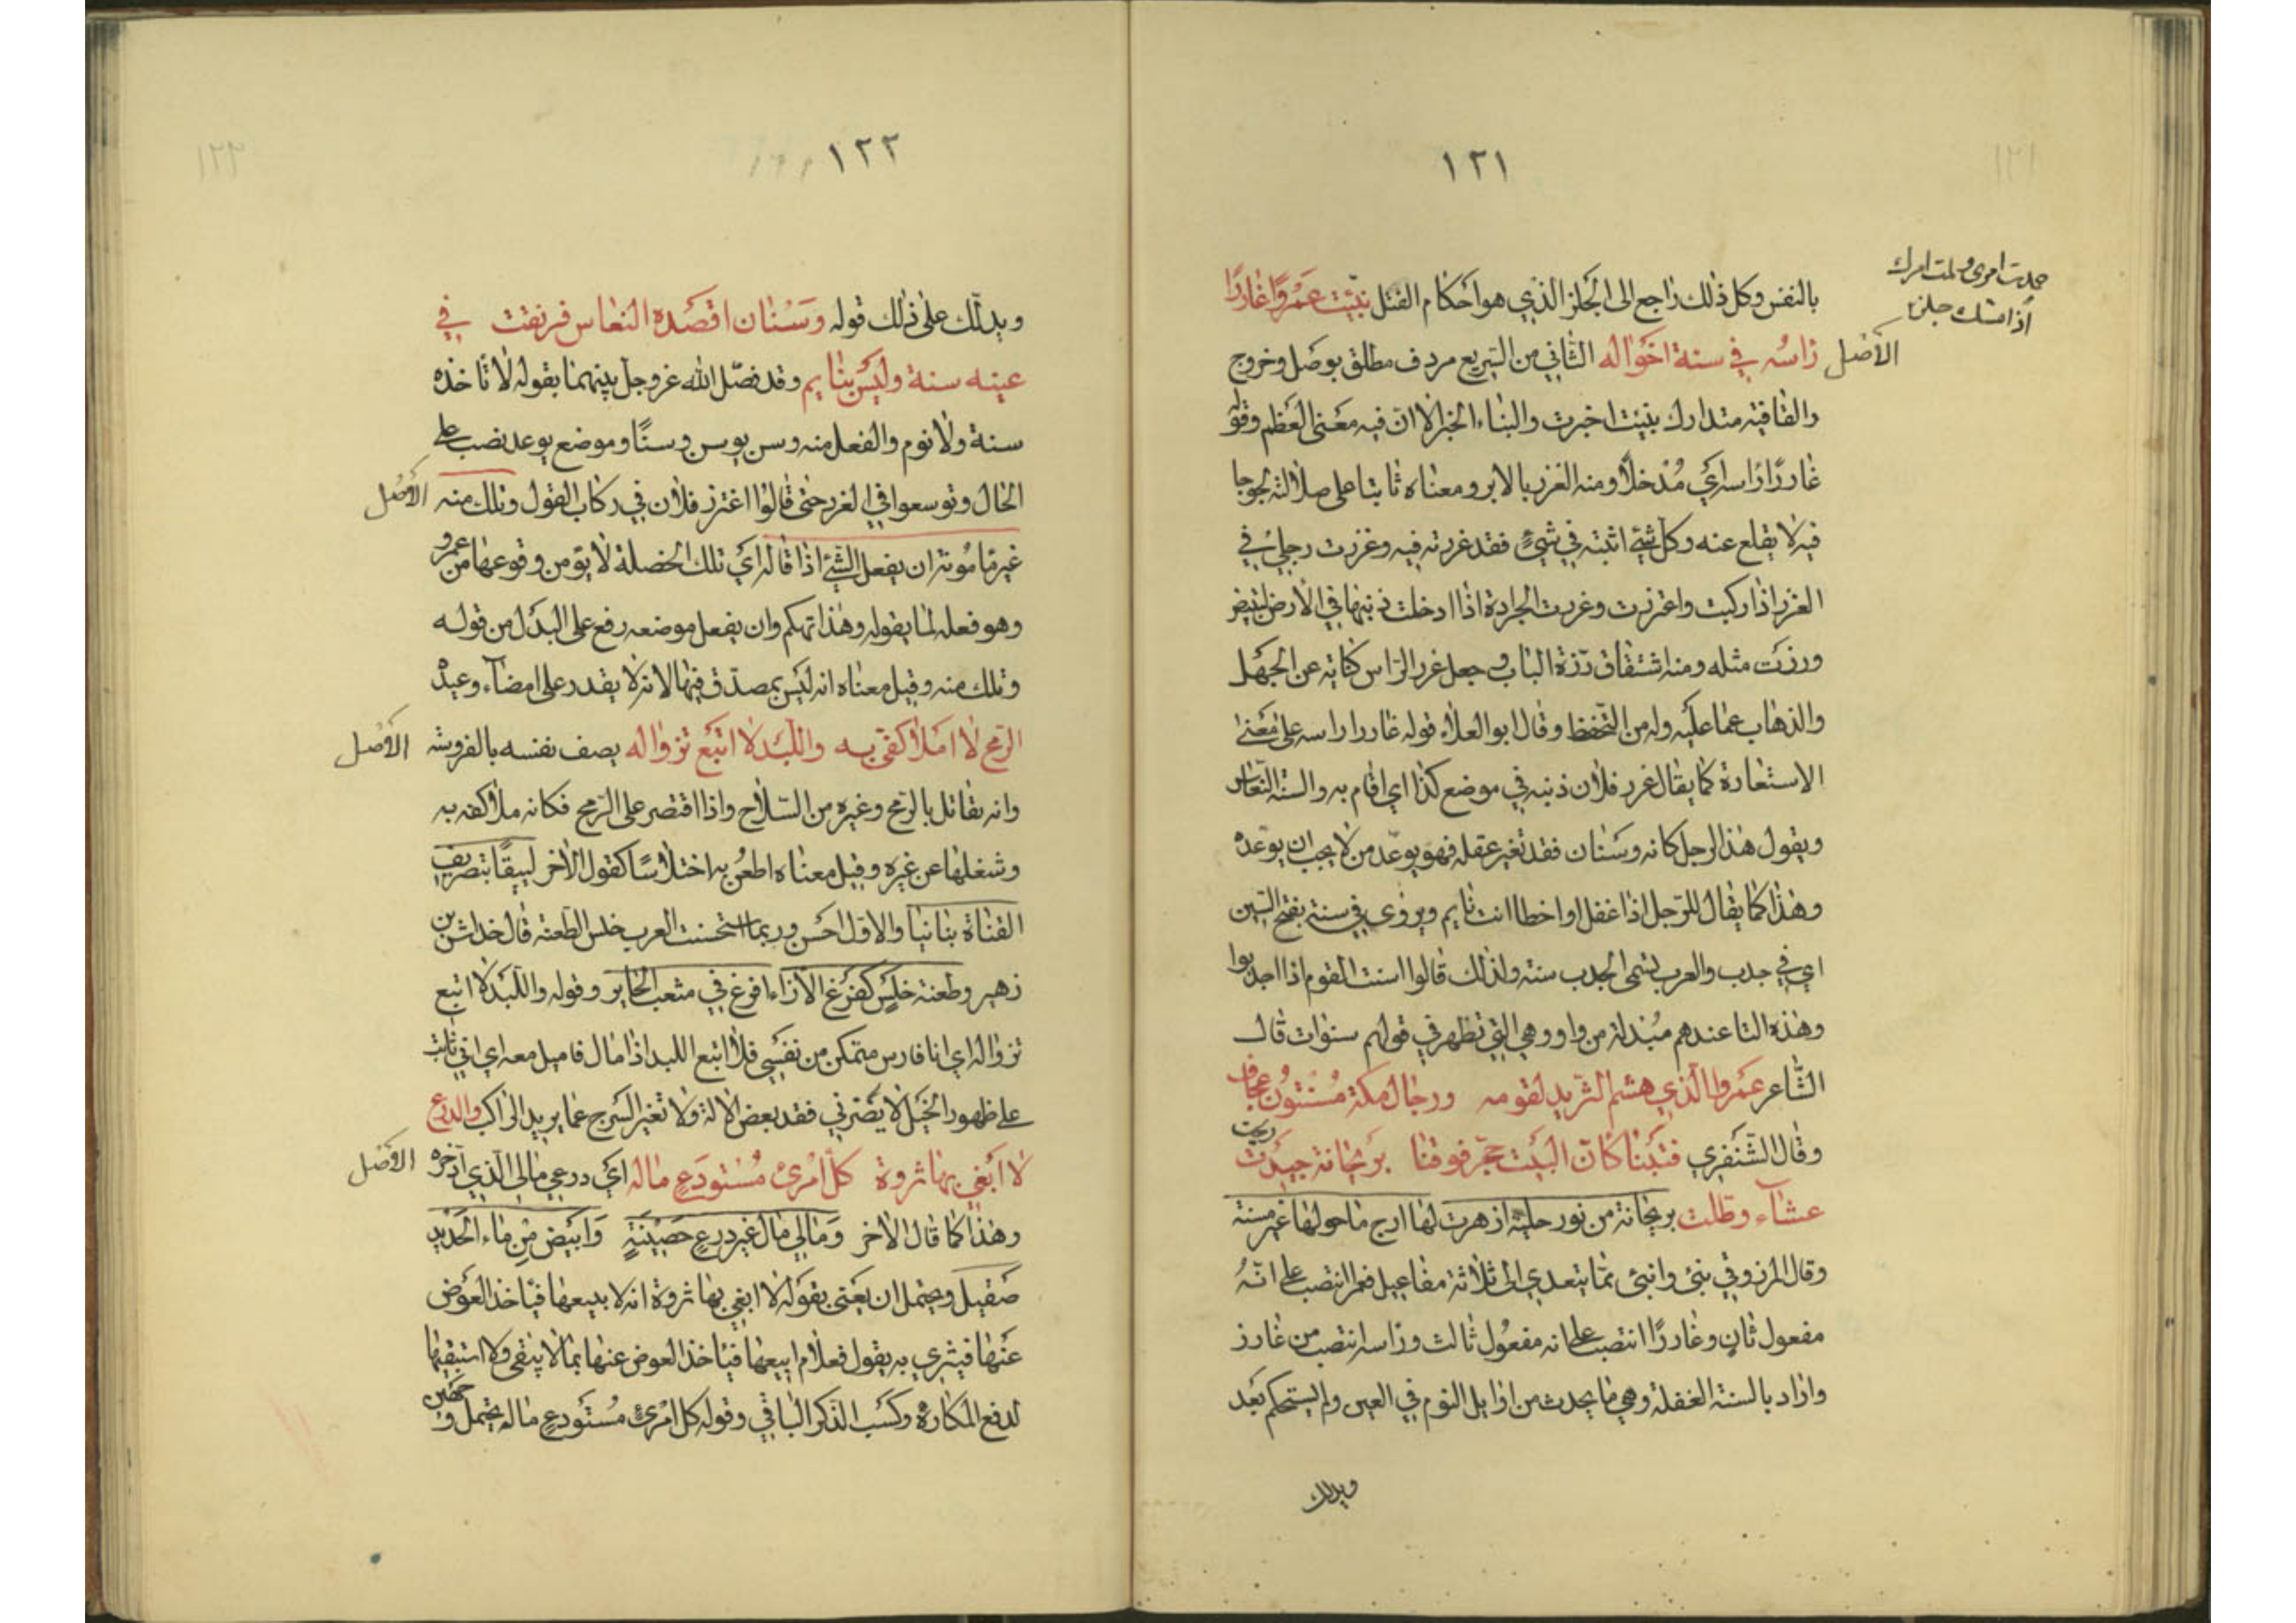 ١٢١
بالنفس وكل ذلك راجع الى الجلز الذي هو احكام الفتل نبّئت عَمْرًا غارزًا
الاصل
رَاسُه في سنة اخواله الثاني من السّريع مردف مطلق بوصل وخروج
والقافية متدارك نبئت اخبرت والنباء الخبر الا ان فيه معنى العظم وقوله
غارزًا راسه اي مُدْخلًا ومنه الغرز بالابر ومعناه ثابتا على ضلالته لجوجا
فيه لا يقلع عنه وكل شئ اثبته في شئ فقد غرزته فيه وغرزت رجلي في
الغرز اذا ركبت واغترزت وغرزت الجرادة اذا ادخلت ذنبها في الارض لتبيض
ورزّت مثله ومنه اشتقاق رزة الباب وجعل غرز الراس كناية عن الجهل
والذهاب عما عليه وله من التحفظ وقال ابو العلاء قوله غارزا راسه على معنى
الاستعارة كما يقال غرز فلان ذنبه في موضع كذا اي اقام به والسنة النعاس
ويقول هذا الرجل كانه وسنان فقد تغير عقله فهو يوعّد من لا يجب ان يوعده
وهذا كما يقال للرّجل اذا غفل او اخطا انت نايم ويروى في سنته بفتح السين
اي في جدب والعرب تسمى الجدب سنة ولذلك قالوا اسنت القوم اذا اجدبوا
وهذه التا عندهم مبدلة من واو وهي التي تظهر في قولهم سنوات قال
الشاعر عَمْرو الّذي هشم الثريد لقومه ورجال مكة مُسْنتُون عجاف
وقال الشنفري فبتنا كانّ البيت حجّر فوقنا بريحانة ريحت
عشاء وطلت بريحانة من نور حلية ازهرت لها ارج ما حولها غير مسنة
وقال المرزوقي نبئ وانبئ مما يتعدى الى ثلاثة مفاعيل فعمرا انتصب على انّه
مفعول ثانٍ وغارزًا انتصب على انه مفعول ثالث وراسه انتصب من غارز
واراد بالسنة الغفلة وهي ما يحدث من اوايل النوم في العين ولم يستحكم بعد
ويدلك
١٢٢
ويدلّك على ذلك قوله وَسْنان اقصَده النعاس فرنقت في
عينه سنة وليْس بنايم وقد فصّل الله عزوجل بينهما بقوله لا تاخذه
سنة ولا نوم والفعل منه وسن يوسن وسنًا وموضع يوعد نصب على
الحال وتوسعوا في الغرز حتى قالوا اغترز فلان في ركاب القول وتلك منه
الاصل
غير مأمونة ان يفعل الشئ اذا قاله اي تلك الخصلة لا يؤمن وقوعها من عمرو
وهو فعله لما يقوله وهذا تهكم وان يفعل موضعه رفع على البدل من قوله
وتلك منه وقيل معناه انه ليس بمصدّق فيها لانه لا يقدر على امضاء وعيده
الرّمح لا املأ كفّي به واللّبد لا اتبع تزواله يصف نفسه بالفروسة
الاصل
وانه يقاتل بالرّمح وغيره من السّلاح واذا اقتصر على الرّمح فكانه ملا كفه به
وشغلها عن غيره وقيل معناه اطعُن به اختلاسًا كقول الاخر لبيقًا بتصريف
القناة بنانيا والاوّل احسن وربما استحسنت العرب خلس الطعنة قال خداش بن
زهير وطعنة خلس كفرغ الازاء افرغ في مثعب الحاير وقوله واللّبد لا اتبع
تزواله اي انا فارس متمكن من نفسي فلا اتبع اللبد اذا مال فاميل معه اي اني ثابت
على ظهور الخيل لا يضرّني فقد بعض الالة ولا تغير السّرج عما يريد الراكب والدرع
لا ابغي بها ثروة كلّ امرئ مُسْتودَع ماله اي درعي مالى الذي ادّخره
الاصل
وهذا كما قال الاخر وَمَالي مال غير درع حَصِيْنَةٍ وَابيَض مِن ماء الحديد
صَقيل ويحتمل ان يعني بقوله لا ابغي بها ثروة انه لا يبيعها فياخذ العوض
عنها فيثري به يقول فعلام ابيعها فياخذ العوض عنها بما لا يبقى ولا استبقيها
لدفع المكاره وكسب الذكر الباقي وقوله كل امرئ مُستودع ماله يحتمل